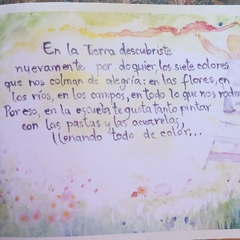 En la Tierra descubriste
nuevamente por doquier, los siete colores
que nos colman de alegría: en las flores, en
los ríos, en los campos, en todo lo que nos rodea
Por eso, en la escuela te gusta tanto pintar
con las pastas y las acuarelas,
llenando todo de color...